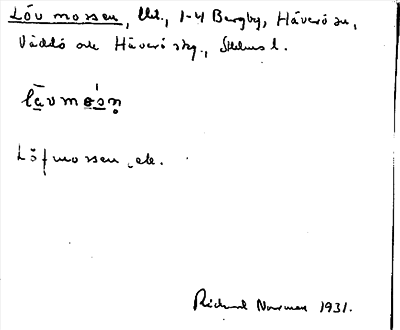 Löv mossen, 1-4 Bergby, Häverö sn,
Väddö och Häverö skg., Sthlms l.
lävmosn̥
Löfmossen, ek.
Richard Norrman 1931.